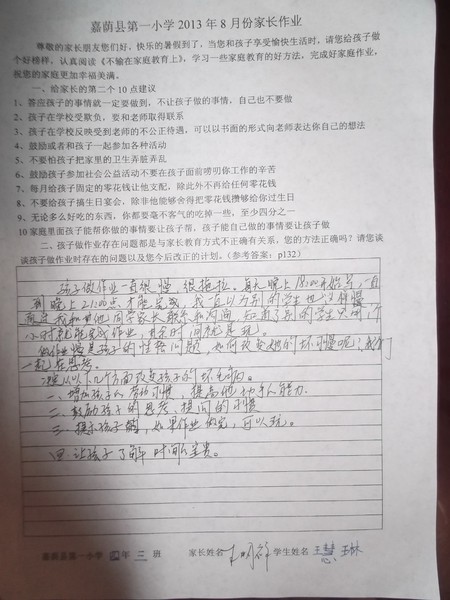 嘉荫县第一小学 2013 年 8 月份家长作业
尊敬的家长朋友您们好，快乐的暑假到了，当您和孩子享受愉快生活时，请您给孩子做
个好榜样，认真阅读《不输在家庭教育上》，学习一些家庭教育的好方法，完成好家庭作业，
祝您的家庭更加幸福美满。
一、给家长的第二个 10 点建议
1、答应孩子的事情就一定要做到，不让孩子做的事情，自己也不要做
2、孩子在学校受欺负，要和老师取得联系
3、孩子在学校反映受到老师的不公正待遇，可以以书面的形式向老师表达你自己的想法
4、鼓励或者和孩子一起参加各种活动
5、不要怕孩子把家里的卫生弄脏弄乱
6、鼓励孩子参加社会公益活动不要在孩子面前唠叨你工作的辛苦
7、每月给孩子固定的零花钱让他支配，除此外不再给任何零花钱
8、不要给孩子搞生日宴会，除非他能够舍得把零花钱攒够给你过生日
9、无论多么好吃的东西，你都要毫不客气的吃掉一些，至少四分之一
10 家庭里面孩子能帮你做的事情要让孩子帮，孩子自己能做的事情要让孩子做
二、孩子做作业存在问题都是与家长教育方式不正确有关系，您的方法正确吗？请您谈
谈孩子做作业时存在的问题以及您今后改正的计划。（参考答案：p132）
孩子做作业一直很慢 很拖拉。每天晚上18:00开始写，一直
到晚上21:00点，才能完成，我一直以为别的学生也这样慢
我和其他同学家长联系和沟通 别的学生只用1个
小时就能完成作业，其余时间就是玩。
做作业慢是孩子的性格问题，如何改变她的坏习惯呢，我们
一起在思考。
准从以下几个方面改变孩子的坏毛病。
一、增加孩子的劳动习惯，提高他动手能力.
二、鼓励孩子的思考、提问的习惯
三、提示孩子，如果作业做完，可以玩。
四 让孩子了解时间宝贵。
嘉荫县第一小学 四年 三 班 家长姓名 学生姓名 王慧琳